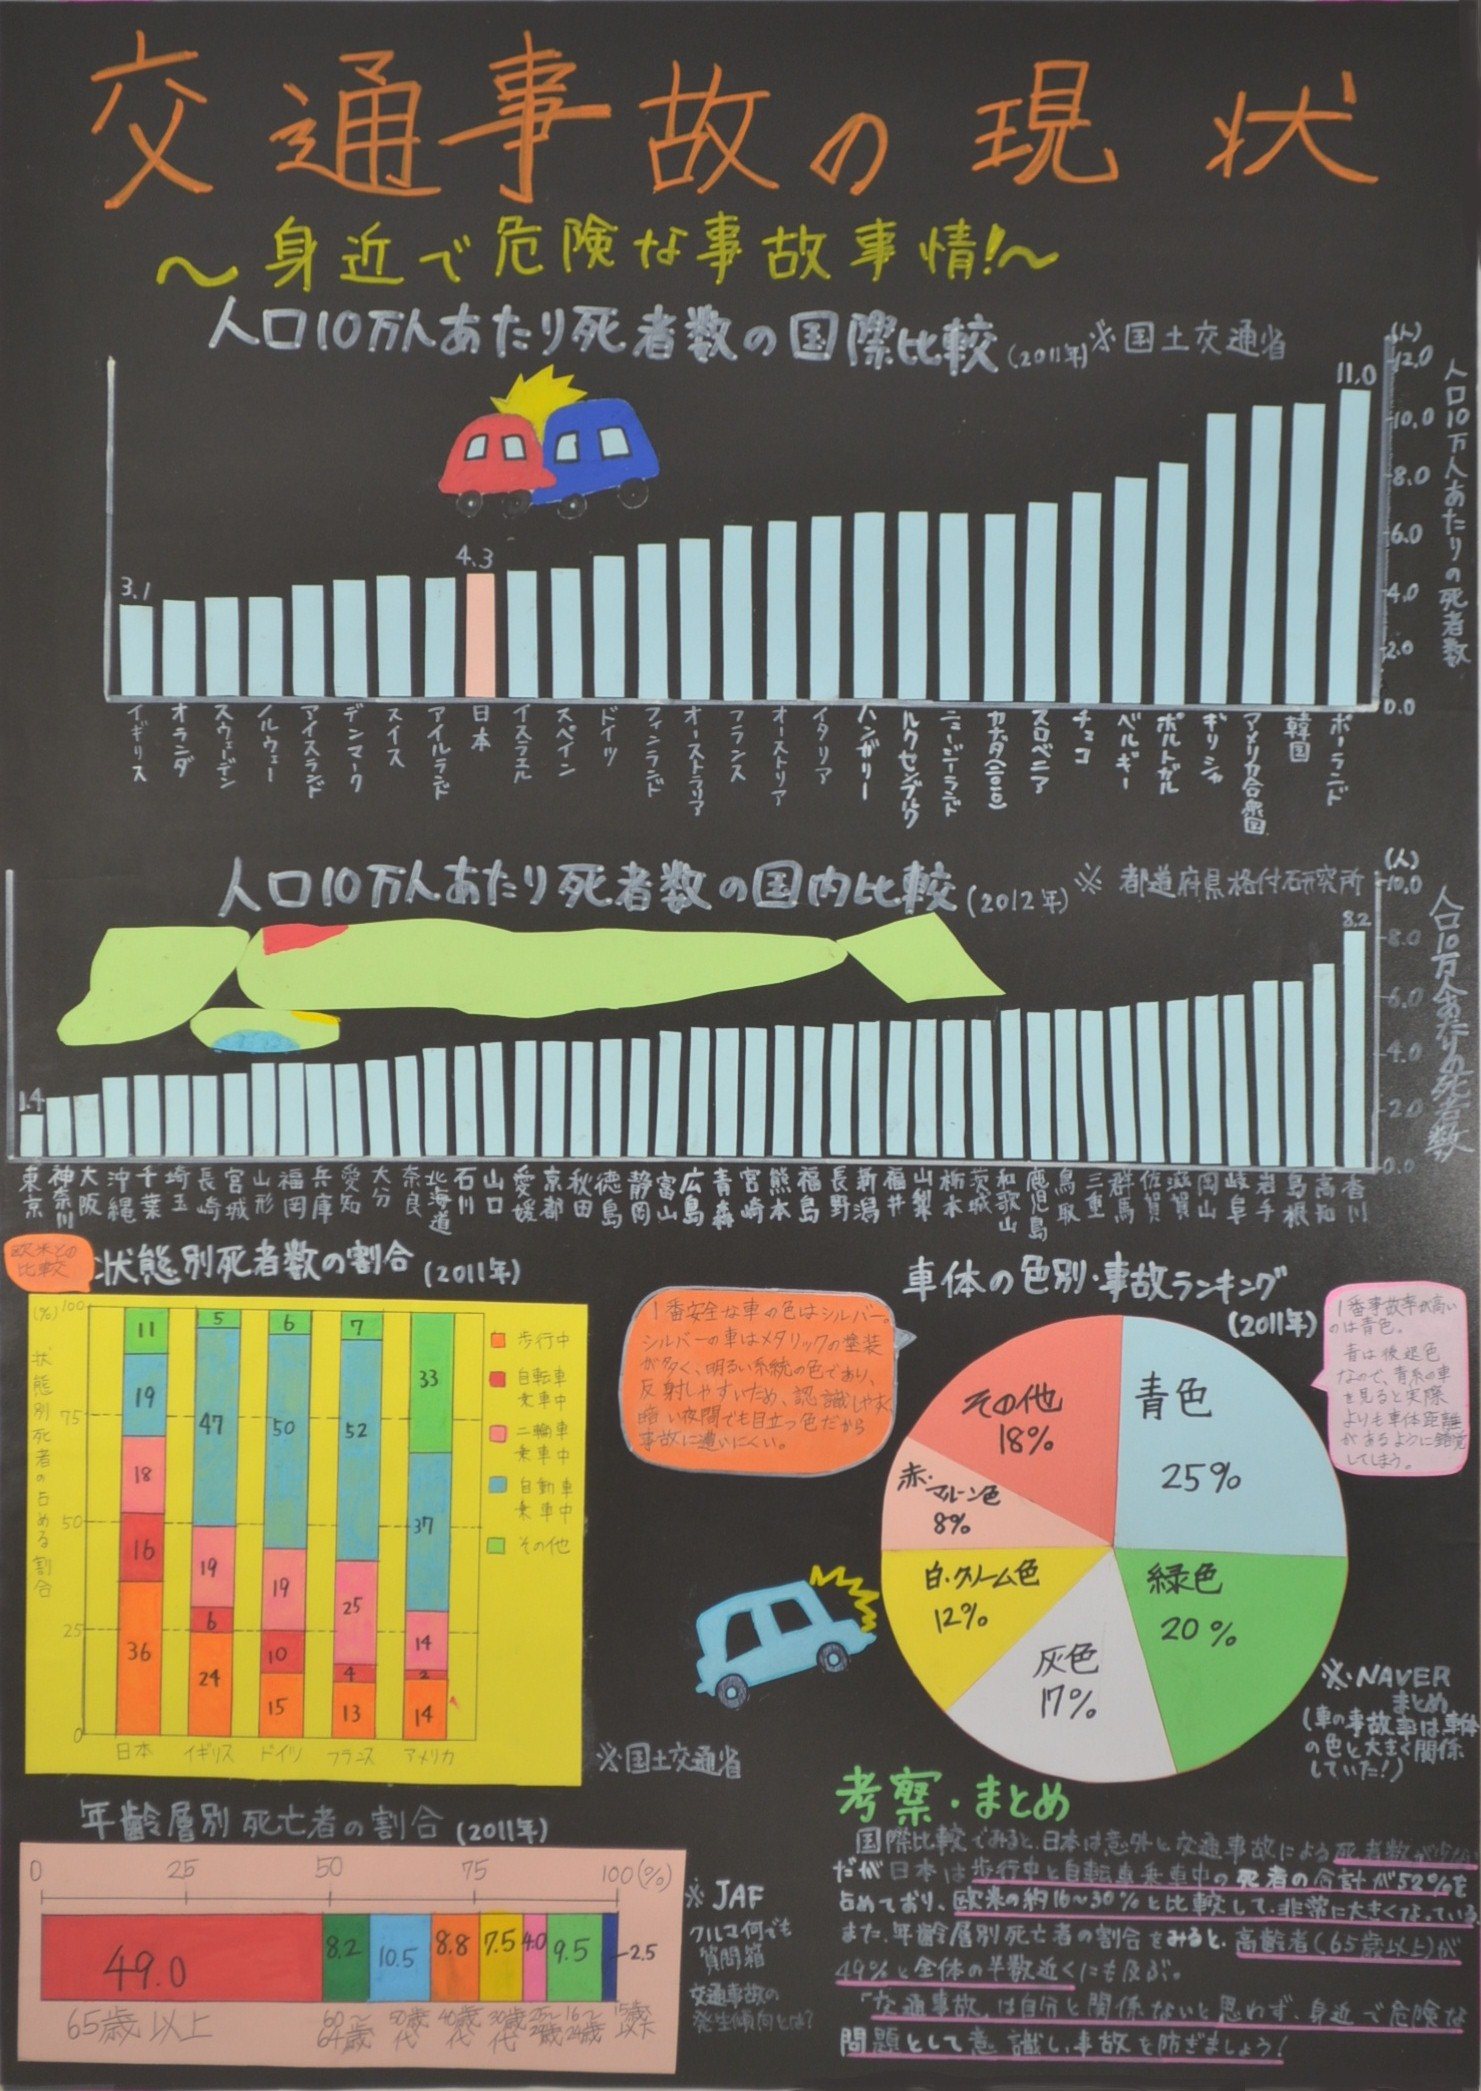 交通事故の現状
～身近で危険な事故事情!～
人口10万人あたり死者数の国際比較(2011年)※国土交通省
(人)
12.0
10.0
8.0
6.0
4.0
2.0
0.0
人口10万人あたりの死者数
3.1
4.3
11.0
イギリス
オランダ
スウェーデン
ノルウェー
アイスランド
デンマーク
スイス
アイルランド
日本
イスラエル
スペイン
ドイツ
フィンランド
オーストラリア
フランス
オーストリア
イタリア
ハンガリー
ルクセンブルク
ニュージーランド
カナダ(二〇一〇)
スロベニア
チェコ
ベルギー
ポルトガル
ギリシャ
アメリカ合衆国
韓国
ポーランド
人口10万人あたり死者数の国内比較(2012年)※都道府県格付研究所
(人)
10.0
8.0
6.0
4.0
2.0
0.0
人口10万人あたりの死者数
1.4
8.2
東京
神奈川
大阪
沖縄
千葉
埼玉
長崎
宮城
山形
福岡
兵庫
愛知
大分
奈良
北海道
石川
山口
愛媛
京都
秋田
徳島
静岡
富山
広島
青森
宮崎
熊本
福島
長野
新潟
福井
山梨
栃木
茨城
和歌山
鹿児島
鳥取
三重
群馬
佐賀
滋賀
岡山
岐阜
岩手
島根
高知
香川
欧米との
比較
状態別死者数の割合(2011年)
(%)
100
75
50
25
0
状態別死者の占める割合
11
19
18
16
36
5
47
19
6
24
6
50
19
10
15
7
52
25
4
13
33
37
14
2
14
日本
イギリス
ドイツ
フランス
アメリカ
歩行中
自転車
乗車中
二輪車
乗車中
自動車
乗車中
その他
※国土交通省
車体の色別・事故ランキング
(2011年)
1番安全な車の色はシルバー。
シルバーの車はメタリックの塗装
が多く、明るい系統の色であり、
反射しやすいため、認識しやすく
暗い夜間でも目立つ色だから
事故に遭いにくい。
1番事故率が高い
のは青色。
青は後退色
なので、青系の車
を見ると実際
よりも車体距離
があるように錯覚
してしまう。
青色
25%
緑色
20%
灰色
17%
白・クリーム色
12%
赤・マルーン色
8%
その他
18%
※NAVER
まとめ
(車の事故率は車体
の色と大きく関係
していた!)
年齢層別死亡者の割合(2011年)
0 25 50 75 100(%)
49.0 8.2 10.5 8.8 7.5 4.0 9.5 2.5
65歳以上
60～
64歳
50歳
代
40歳
代
30歳
代
25～
29歳
16～
24歳
15歳
以下
※JAF
クルマ何でも
質問箱
交通事故の
発生傾向とは?
考察・まとめ
国際比較でみると、日本は意外と交通事故による死者数が少ない
だが日本は歩行中と自転車乗車中の死者の合計が52%を
占めており、欧米の約16～30%と比較して非常に大きくなっている
また、年齢層別死亡者の割合をみると、高齢者(65歳以上)が
49%と全体の半数近くにも及ぶ。
「交通事故」は自分と関係ないと思わず、身近で危険な
問題として意識し、事故を防ぎましょう!